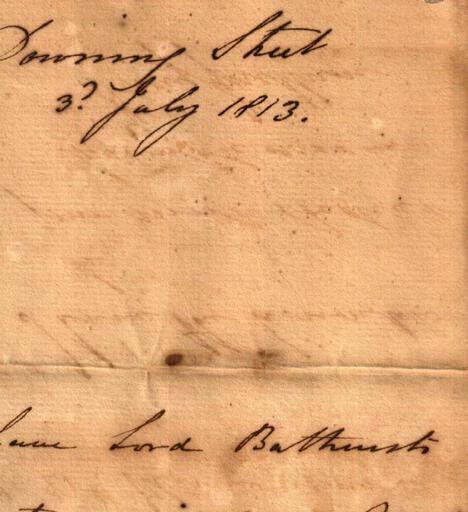 Downing Street
3d July 1813.
have Lord Bathurst's